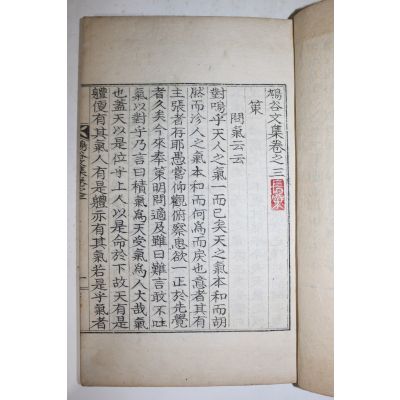 鳩谷文集卷之三
策
問氣云云
對嗚乎天人之氣一而已矣天之氣本和而胡
然而沴人之氣本和而何爲而戾也意者其有
主張者存耶愚嘗仰觀俯察思欲一正於先覺
者久矣今來奉策明問適及雖曰難言敢不吐
氣以對乎乃言曰積氣爲天受氣爲人大哉氣
也蓋天以是位乎上人以是命於下故天有是
軆便有其氣人有是軆亦有其氣若是乎氣者